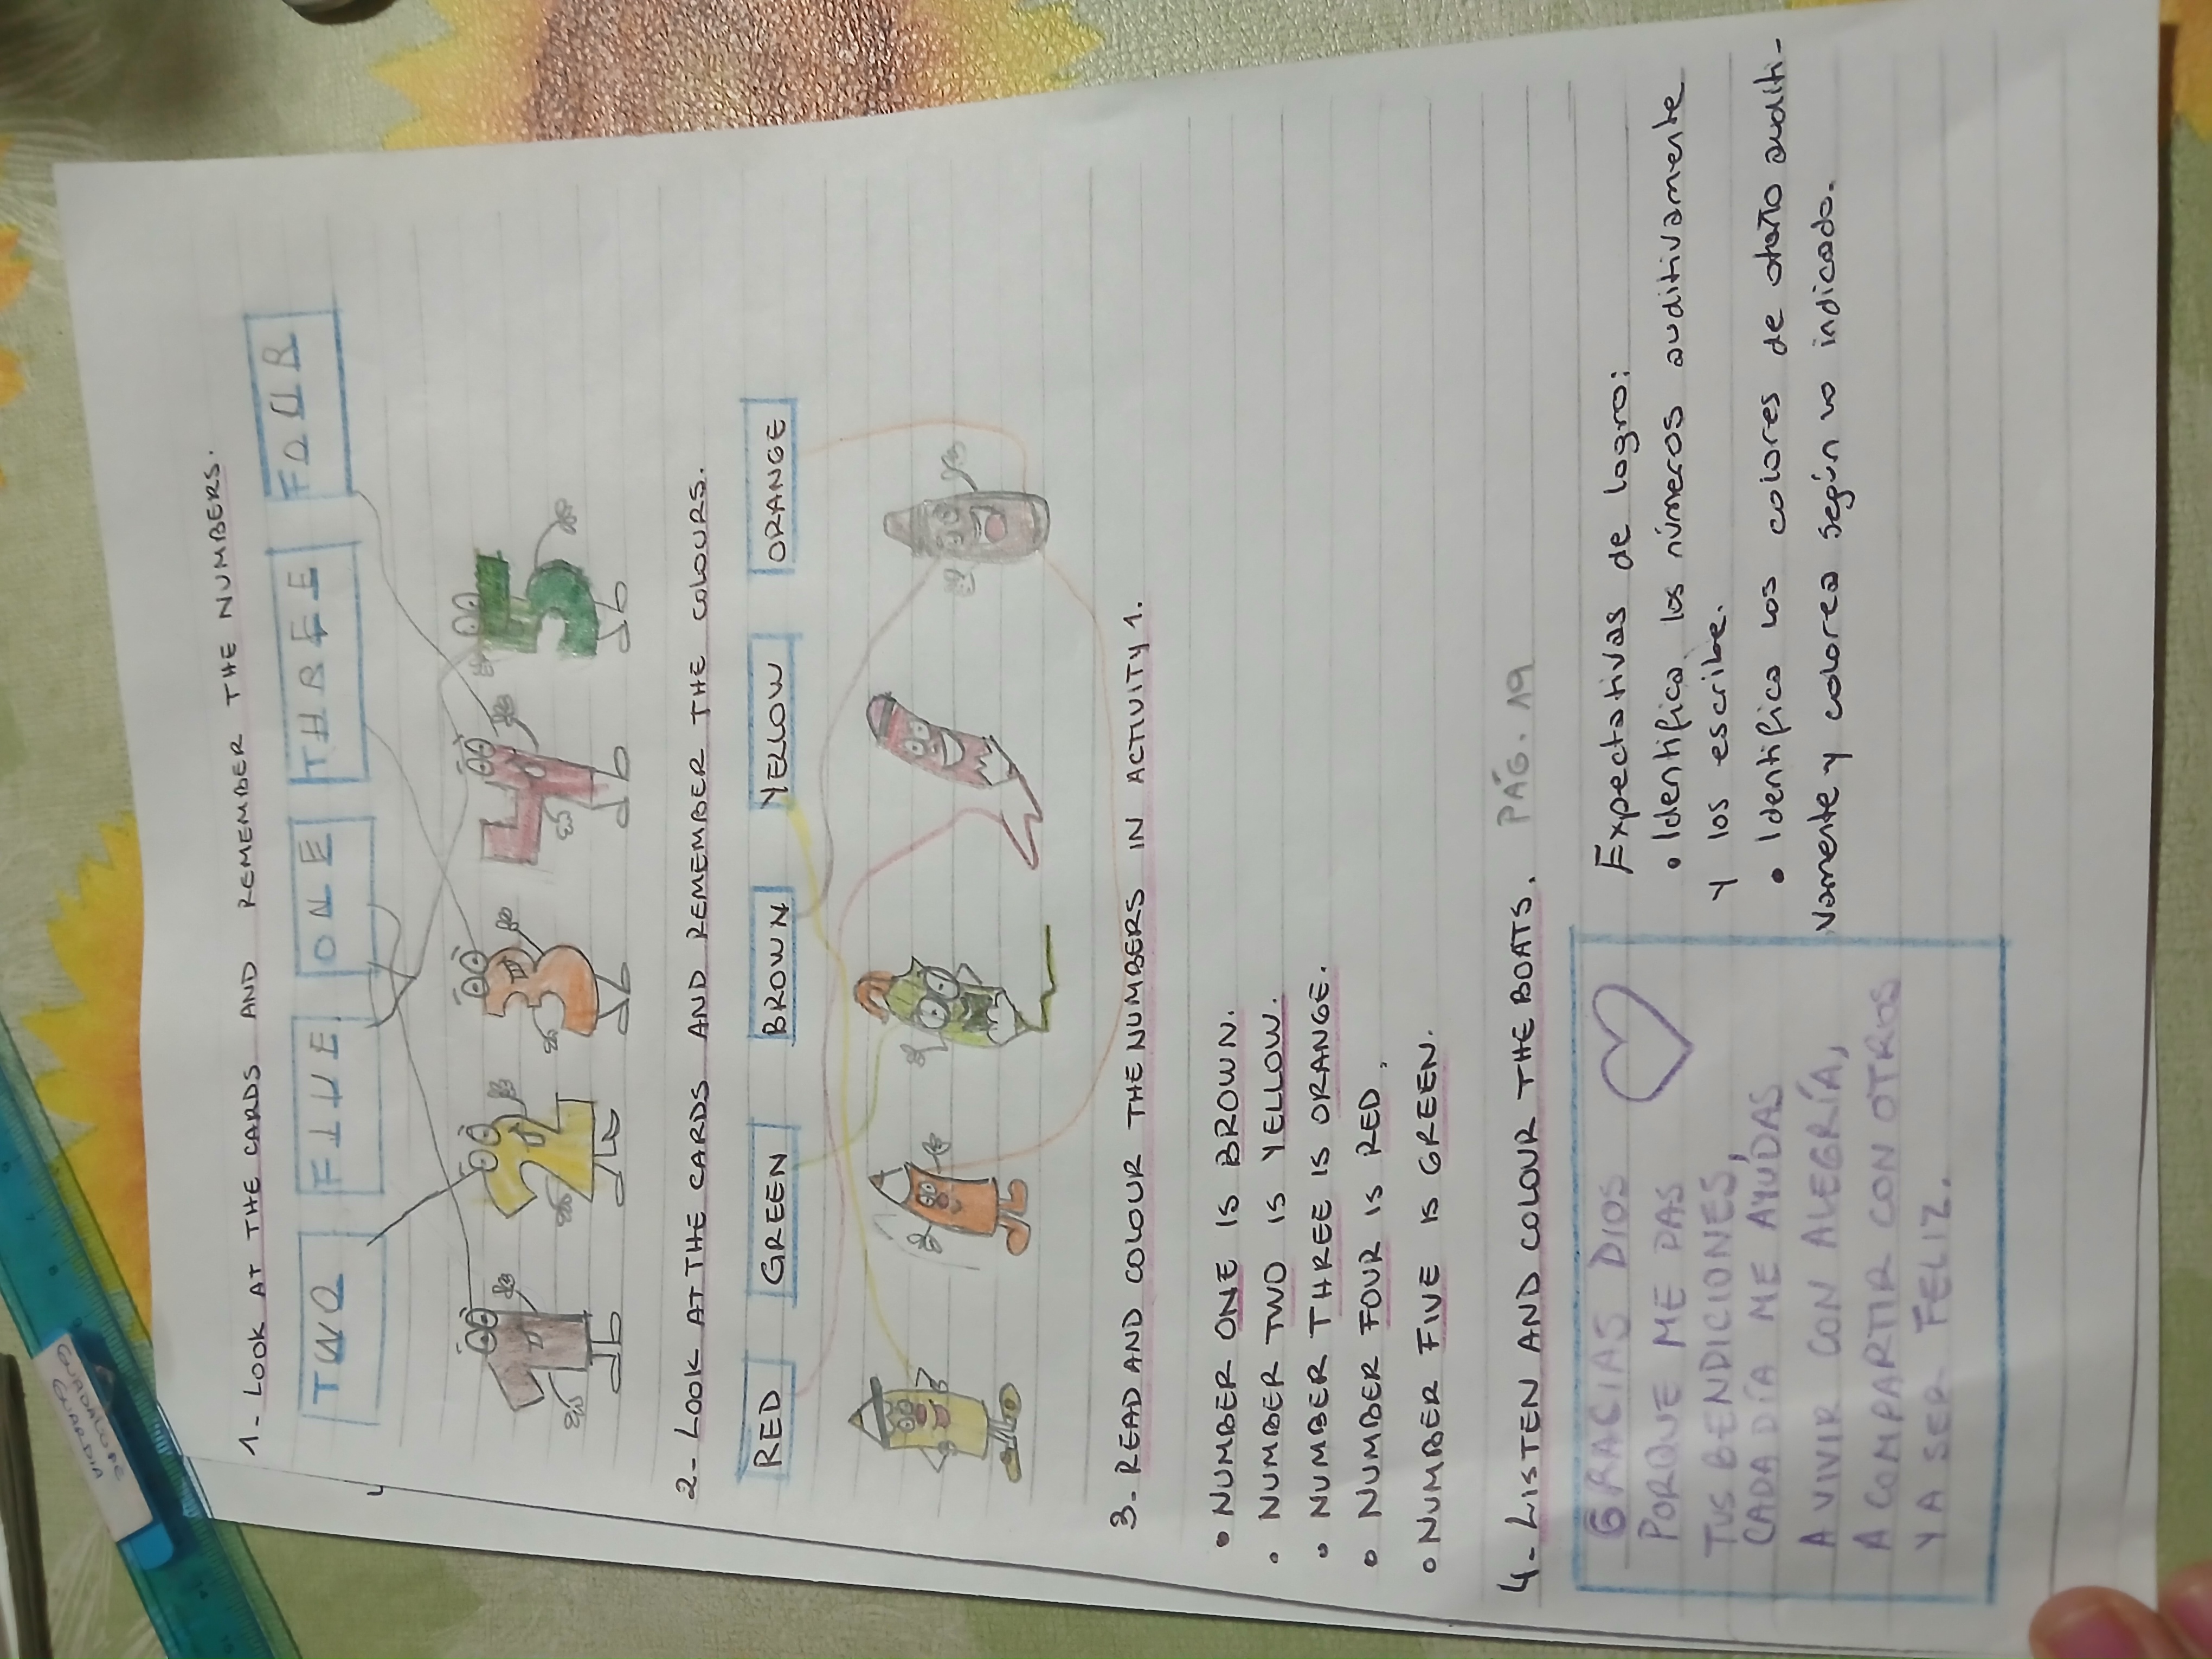 1- LOOK AT THE CARDS AND REMEMBER THE NUMBERS.
TWO FIVE ONE THREE FOUR
1 2 3 4 5
2- LOOK AT THE CARDS AND REMEMBER THE COLOURS.
RED GREEN BROWN YELLOW ORANGE
3- READ AND COLOUR THE NUMBERS IN ACTIVITY 1.
• NUMBER ONE IS BROWN.
• NUMBER TWO IS YELLOW.
• NUMBER THREE IS ORANGE.
• NUMBER FOUR IS RED.
• NUMBER FIVE IS GREEN.
4- LISTEN AND COLOUR THE BOATS. PÁG. 19
GRACIAS DIOS
PORQUE ME DAS
TUS BENDICIONES,
CADA DÍA ME AYUDAS
A VIVIR CON ALEGRÍA,
A COMPARTIR CON OTROS
Y A SER FELIZ.
Expectativas de logro:
• Identifica los números auditivamente
y los escribe.
• Identifica los colores de otoño auditi-
vamente y colorea según lo indicado.
GUADALUPE
GUARDIA